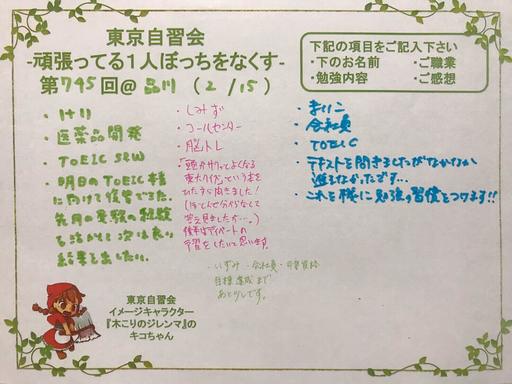 東京自習会
-頑張ってる1人ぼっちをなくす-
第795回@ 品川 (2/15)
下記の項目をご記入下さい
・下のお名前 ・ご職業
・勉強内容 ・ご感想
・けり
・医薬品開発
・TOEIC S&W
・明日のTOEIC本番
に向けて復習できた。
先月の受験の経験
を活かして次は良い
結果を出したい。
・しみず
・コールセンター
・脳トレ
「頭がサクッとよくなる
東大クイズ」という本を
ひたすら解きました!
(ほとんど分からなくて
答え見ましたが…。)
後半はアルバイトの
予習をしたいと思います。
・まいこ
・会社員
・TOEIC
・テキストを開きましたがなかなか
進まなかったです…
・これを機に勉強の習慣をつけます!!
・いずみ ・会社員 ・資格
目標達成まで
あと少しです。
東京自習会
イメージキャラクター
『木こりのジレンマ』の
キコちゃん